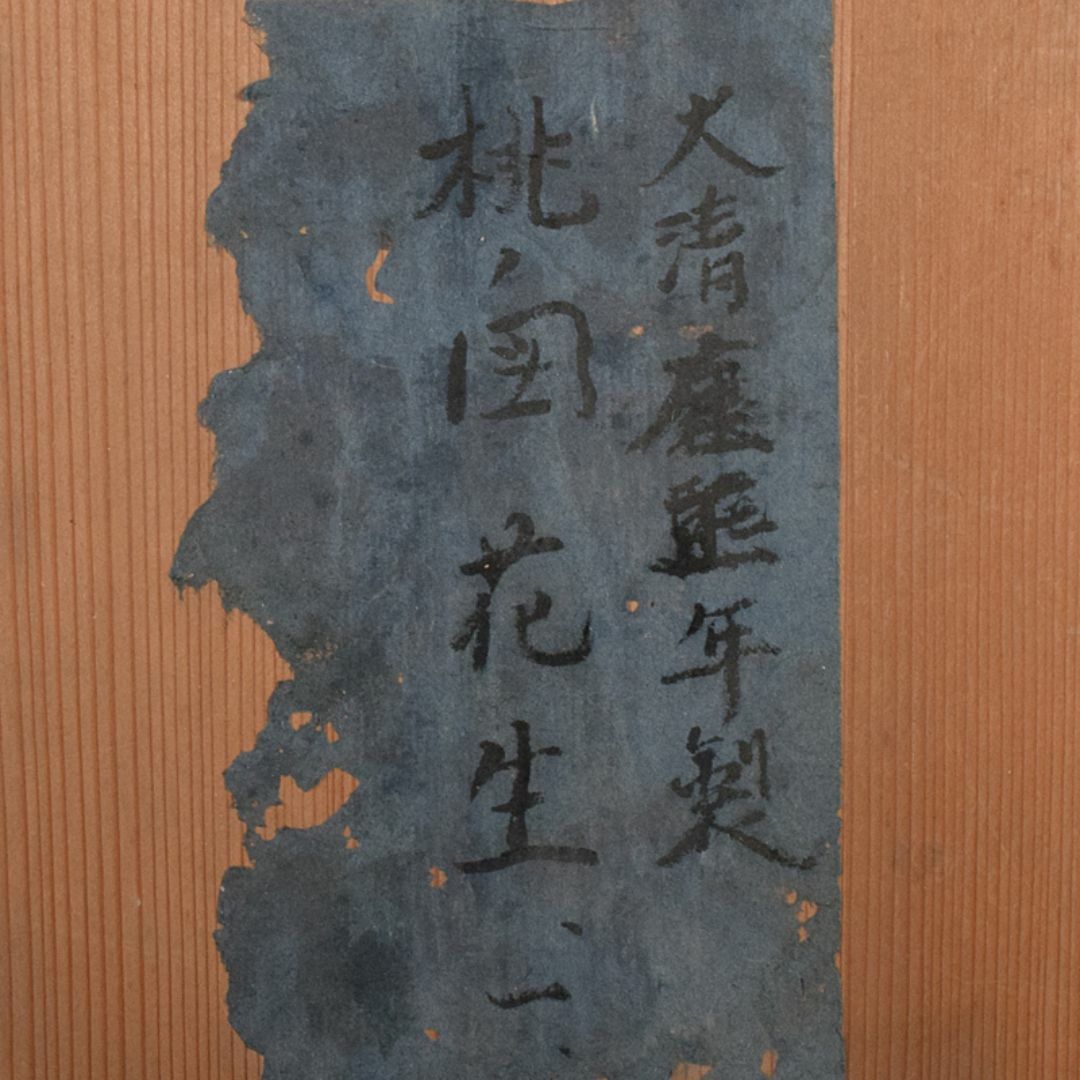 大清康熙年製
桃ノ図花生、一、